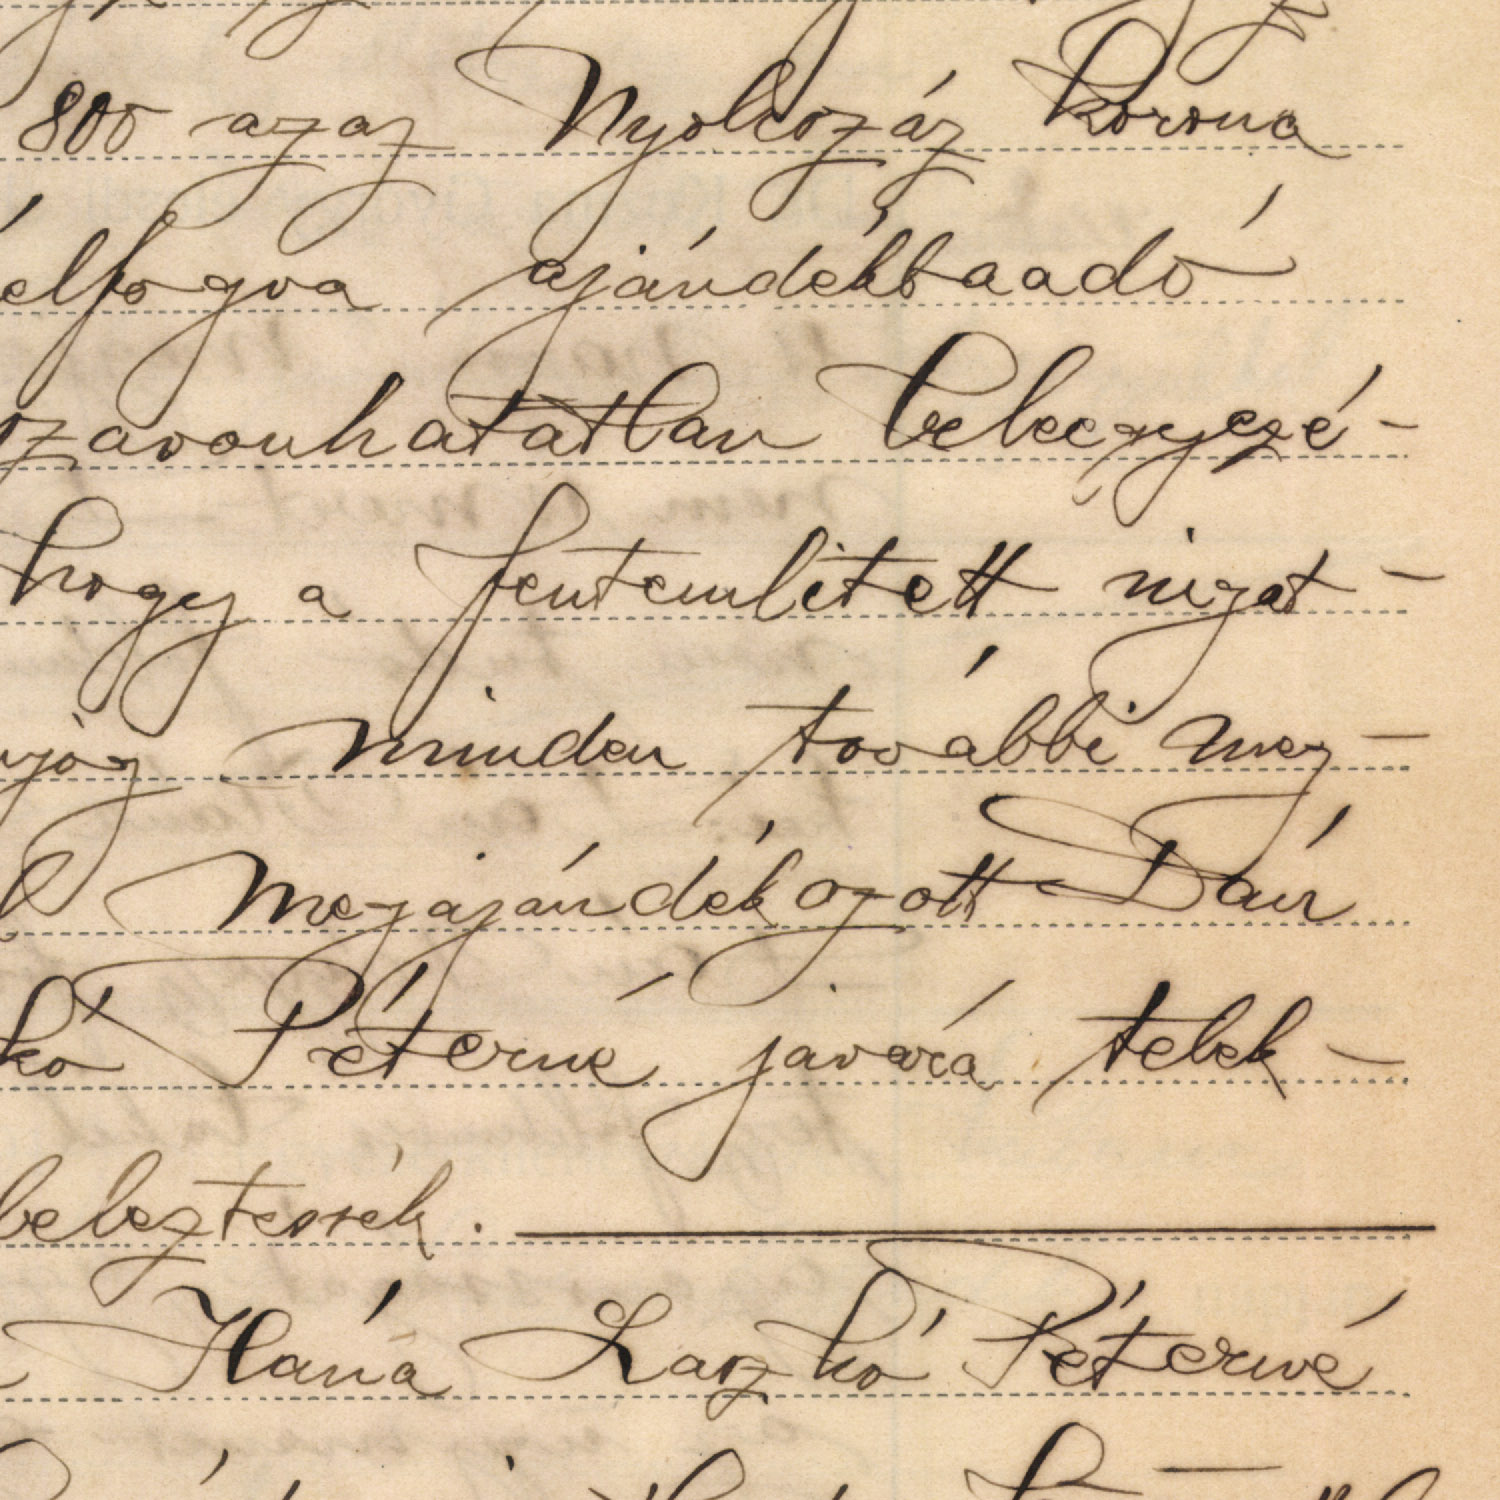 800 azaz Nyolczáz korona
élfogva ajándékbaadó
szavonhatatlan beleegyezé-
hogy a fentemlitett nizat-
jog minden további meg-
megajándékozott Dán
kó Péterné javára telek-
bebeztessék.
Ilána Laszkó Péterné